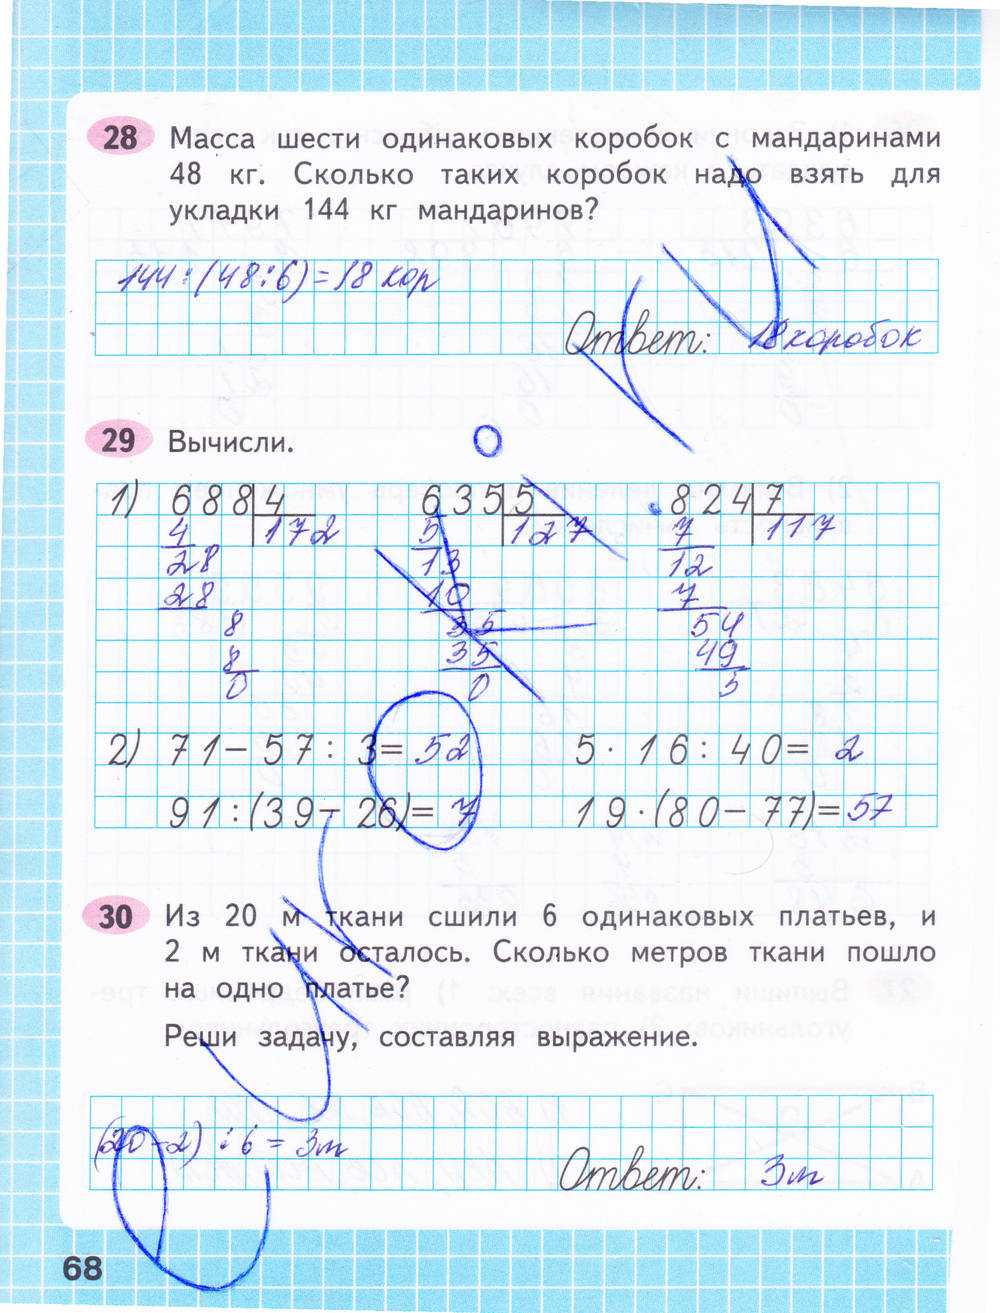 28 Масса шести одинаковых коробок с мандаринами
48 кг. Сколько таких коробок надо взять для
укладки 144 кг мандаринов?
144:(48:6)=18 кор
Ответ: 18 коробок
29 Вычисли.
1) 688 4 635 5 824 7
4 172 5 127 7 117
28 13 12
28 10 7
8 35 54
8 35 49
0 0 5
2) 71-57:3=52 5·16:40=2
91:(39-26)=7 19·(80-77)=57
30 Из 20 м ткани сшили 6 одинаковых платьев, и
2 м ткани осталось. Сколько метров ткани пошло
на одно платье?
Реши задачу, составляя выражение.
(20-2):6=3м
Ответ: 3м
68